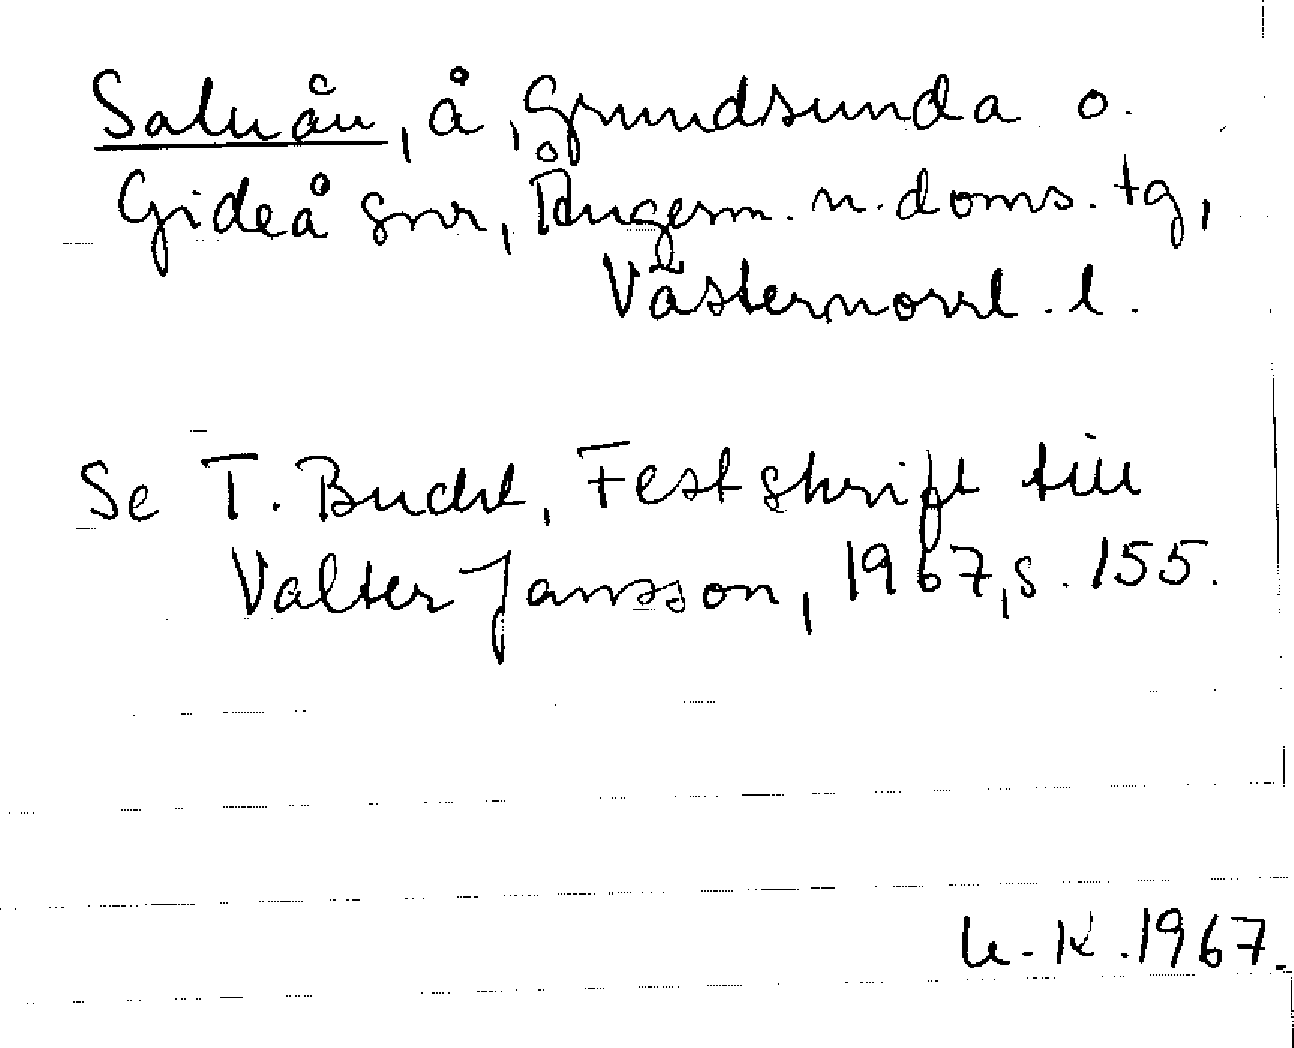 Saluån, å, Grundsunda o.
Gideå snr, Ångerm. n. doms. tg,
Västernorrl. l.
Se T. Bucht, Festskrift till
Valter Jansson, 1967, s. 155.
K. 1967.